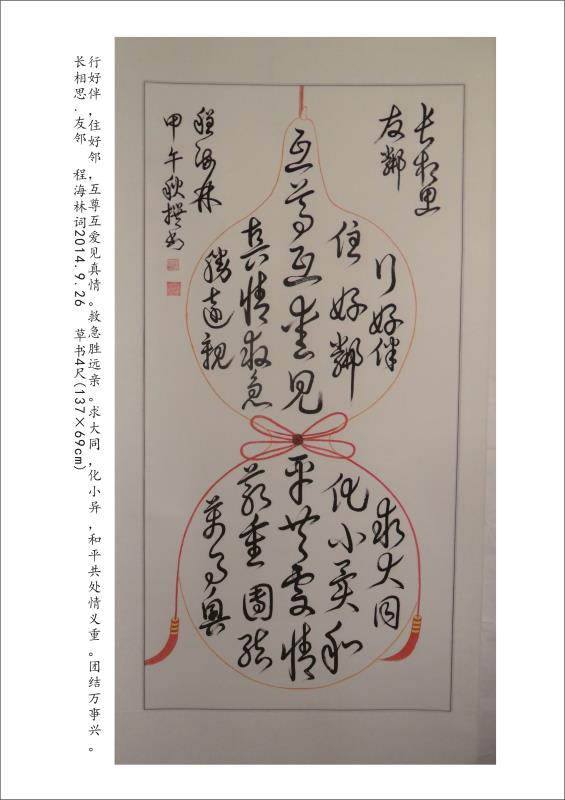 行好伴,住好邻,互尊互爱见真情。救急胜远亲。求大同,化小异,和平共处情义重。团结万事兴。
长相思.友邻 程海林词2014.9.26 草书4尺(137×69cm)
长相思
友鄰
行好伴
住好鄰
互尊互爱见
真情救急
勝遠親
求大同
化小异和
平共處情
義重團结
萬事興
程海林
甲午秋撰书